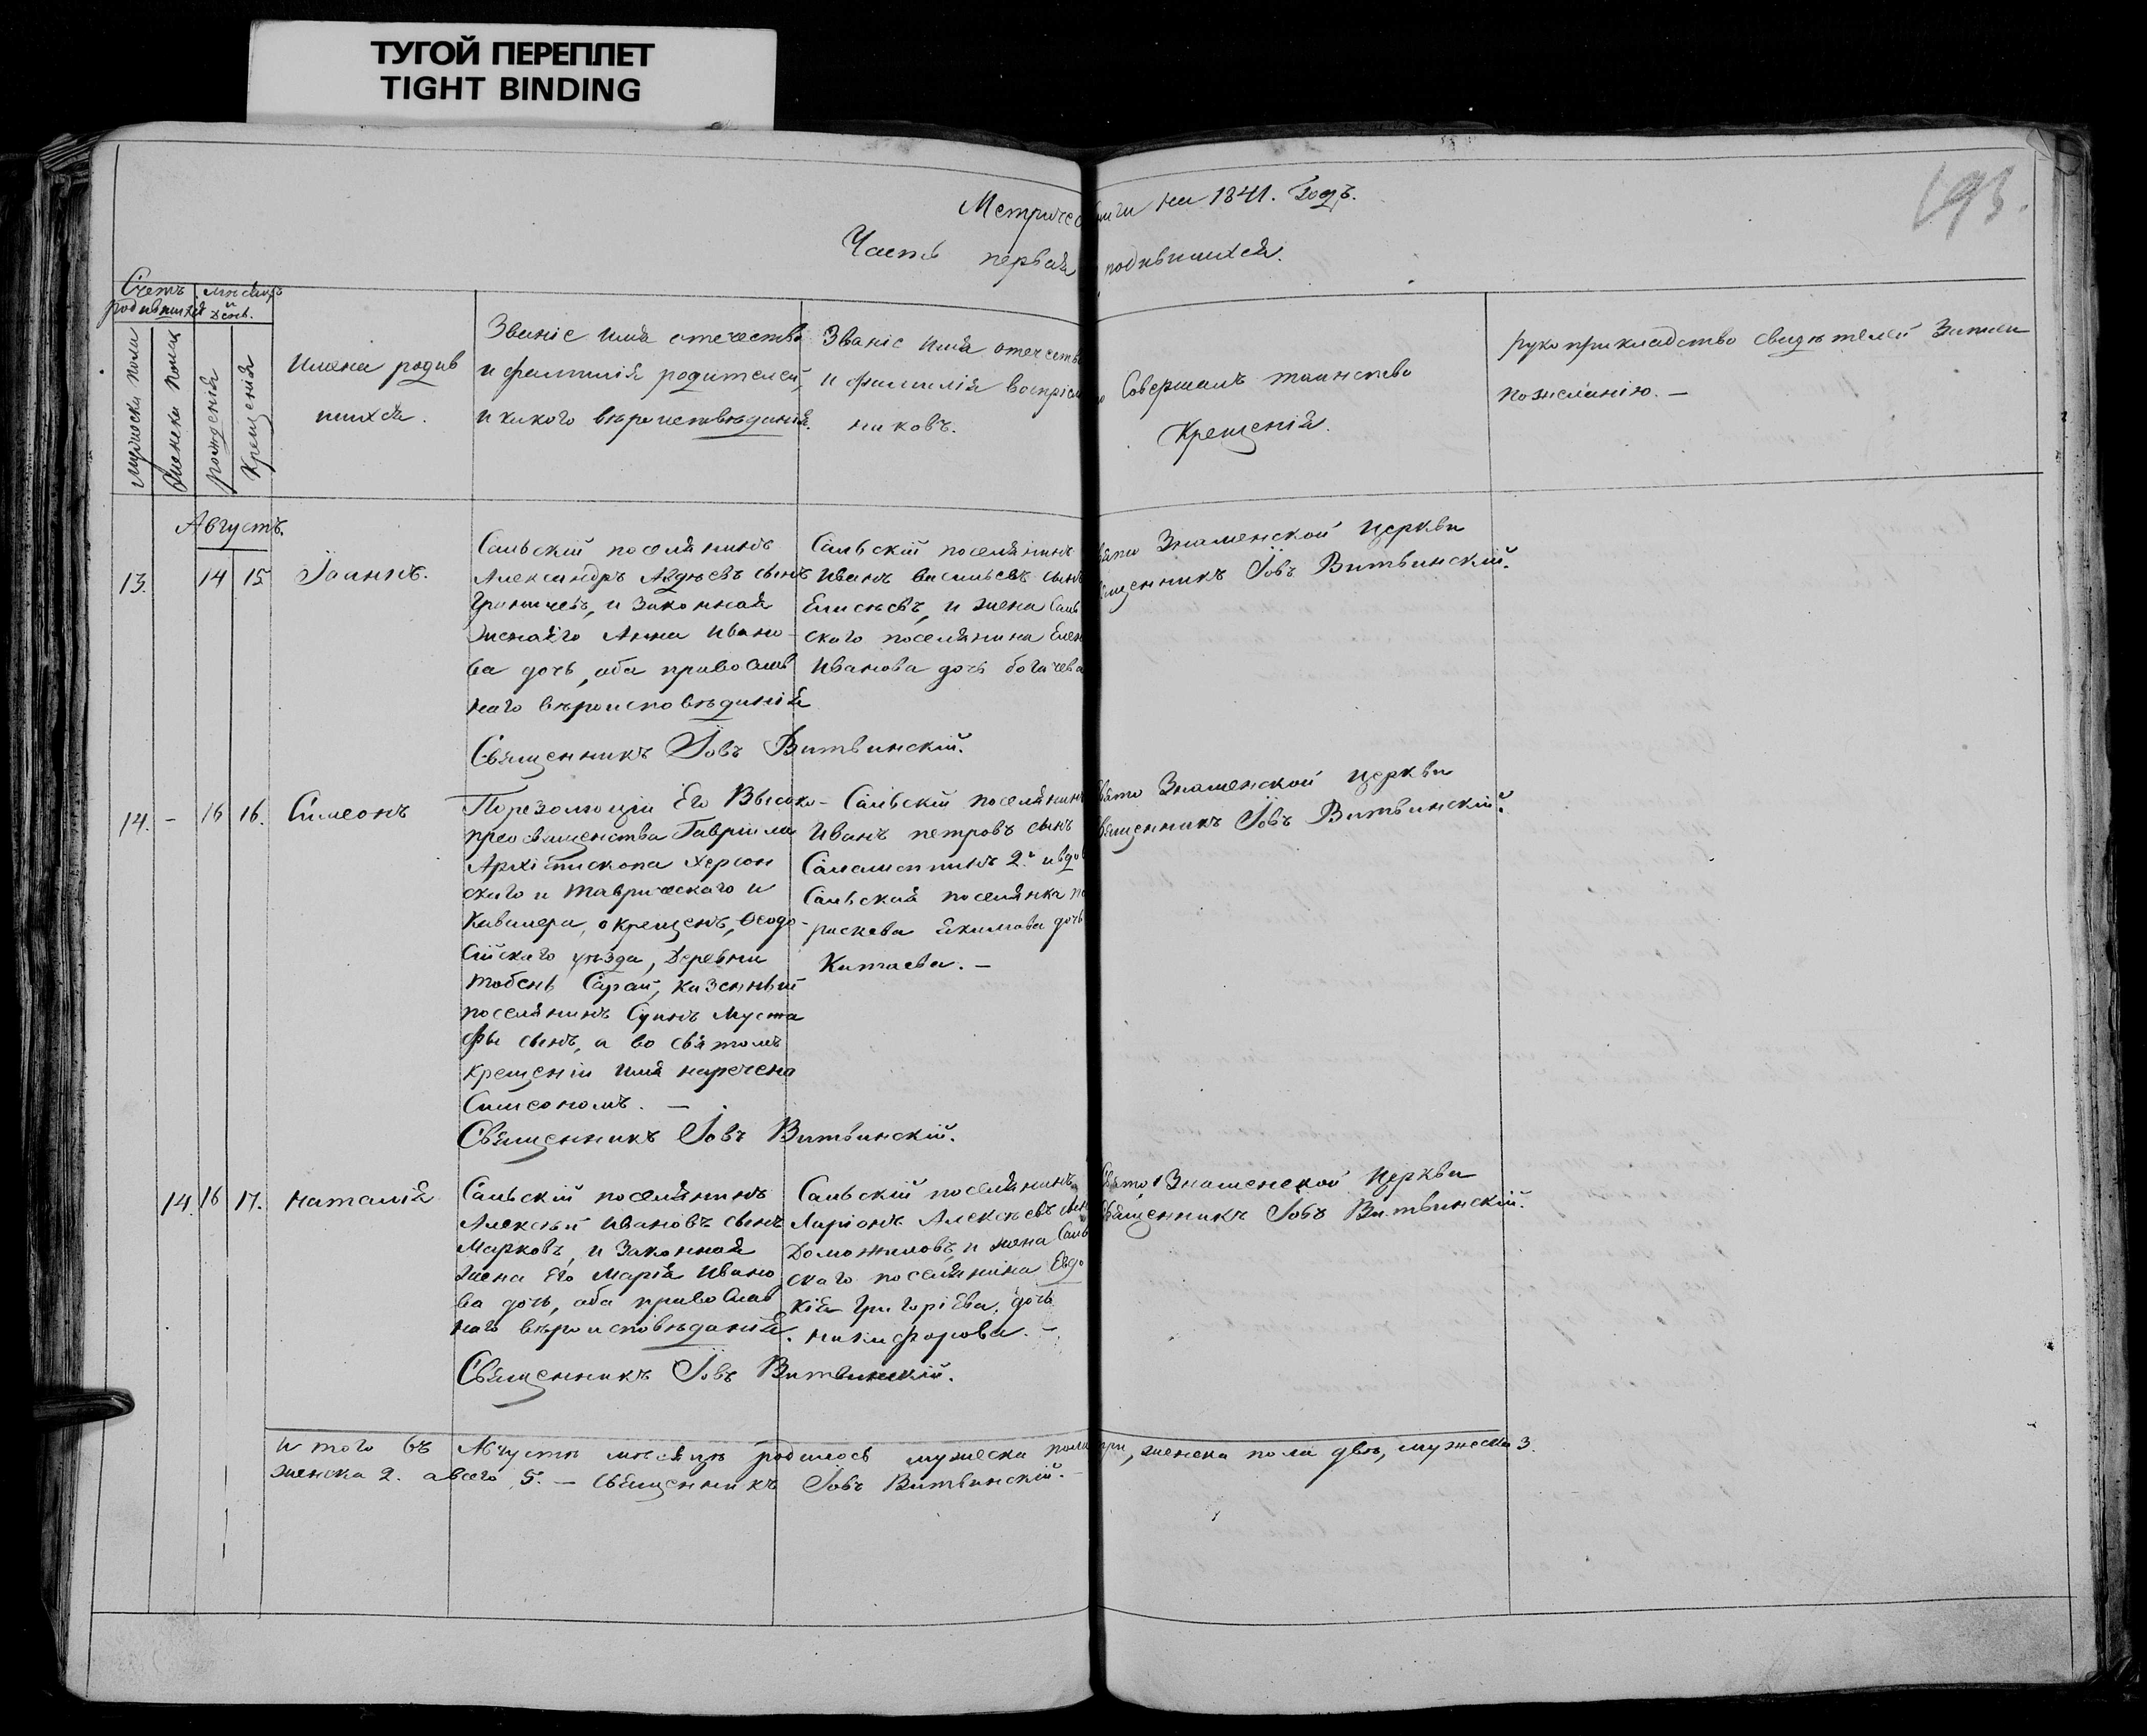 ТУГОЙ ПЕРЕПЛЕТ
TIGHT BINDING
193.
на 1841. Годъ.
Часть первая
Счетъ родившихся
мѣсяцъ и день.
мужеска пола
Женска пола
рождения
Крещения
Имена родив
шихся.
Званіе имя отечество
и фамилія родителей,
и какого вѣроисповѣданія.
Званіе имя отечеств
и фамилія воспріем
никовъ.
Совершалъ таинство
Крещенія.
рукоприкладство свидѣтелей записи
пожеланію. —
Августъ.
13. 14 15 Іоаннъ.
Сальскій поселянинъ
Александръ Авдѣевъ сынъ
и законная
Анна Ивано-
ва дочь, оба православ
наго вѣроисповѣданія
Священникъ Іовъ Витвинскій.
Сальскій поселянинъ
Иванъ васильевъ сынъ
Елисѣевъ, и жена Саль
скаго поселянина Елен
Иванова дочь богачева
Знаменской Церкви
Іовъ Витвинскій.
14. – 16 16. Симеонъ
Порезолюціи Его Высоко-
преосвященства Гавріила
Архіепископа Херсон
скаго и Таврическаго и
Кавалера, окрещенъ, Ѳеодо-
сійскаго уѣзда, Деревни
Тобень Сарай, казенный
поселянинъ Муста
фы сынъ, а во святомъ
крещеніи имя наречено
Симеономъ. —
Священникъ Іовъ Витвинскій.
Сальскій поселянинъ
Иванъ петровъ сынъ
2й
Сальская поселянка
раскева Екимова дочь
Китаева. —
Знаменской Церкви
Іовъ Витвинскій.
14. 16 17. Наталія
Сальскій поселянинъ
Алексѣй Ивановъ сынъ
Марковъ, и Законная
жена Его Марія Ивано
ва дочь, оба православ
наго вѣроисповѣданія.
Священникъ Іовъ Витвинскій.
Сальскій поселянинъ
Ларіонъ Алексѣевъ сын
Доможиловъ, и жена Саль
скаго поселянина Евдо
кія Григоріева, дочь
Никифорова. –
Свято Знаменской Церкви
Священникъ Іовъ Витвинскій.
и того въ Августѣ мѣсяцѣ родилось мужеска пола три, женска пола двѣ, мужеска 3.
женска 2. авсего 5. — Священникъ Іовъ Витвинскій. –